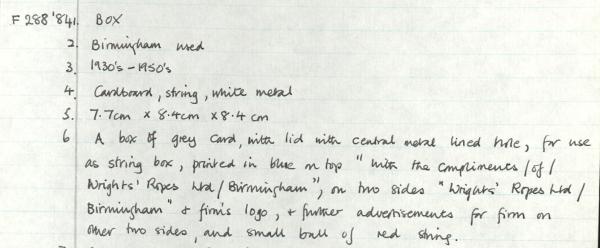 F288'84 1. BOX
2. Birmingham used
3. 1930's-1950's
4. Cardboard, string, white metal
5. 7.7cm x 8.4cm x 8.4 cm
6 A box of grey card, with lid with central metal lined hole, for use
as string box, printed in blue on top "With the compliments/of/
Wrights' Ropes Ltd/Birmingham", on two sides "Wrights' Ropes Ltd/
Birmingham" & firm's logo, & further advertisements for firm on
other two sides, and small ball of red string.